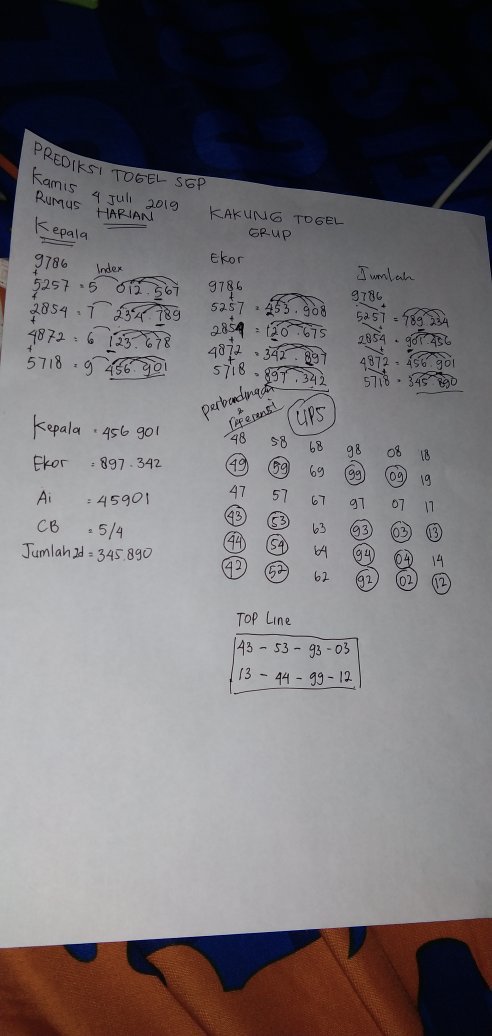 PREDIKSI TOGEL SGP
Kamis 4 Juli 2019
Rumus HARIAN
KAKUNG TOGEL
GRUP
Kepala
Index
9786
5257 = 5 012.567
2854 = 7 234.789
4872 = 6 123.678
5718 = 9 456.901
Ekor
9786
5257 = 453.908
2854 = 120.675
4872 = 342.897
5718 = 897.342
Jumlah
9786
5257 = 789.234
2854 = 901.456
4872 = 456.901
5718 = 345.890
Kepala = 456 901
Ekor = 897.342
Ai = 45901
CB = 5/4
Jumlah 2d = 345.890
perbandingan
&
referensi
UPS
48 58 68 98 08 18
49 59 69 99 09 19
47 57 67 97 07 17
43 53 63 93 03 13
44 54 64 94 04 14
42 52 62 92 02 12
TOP Line
43 - 53 - 93 - 03
13 - 44 - 99 - 12